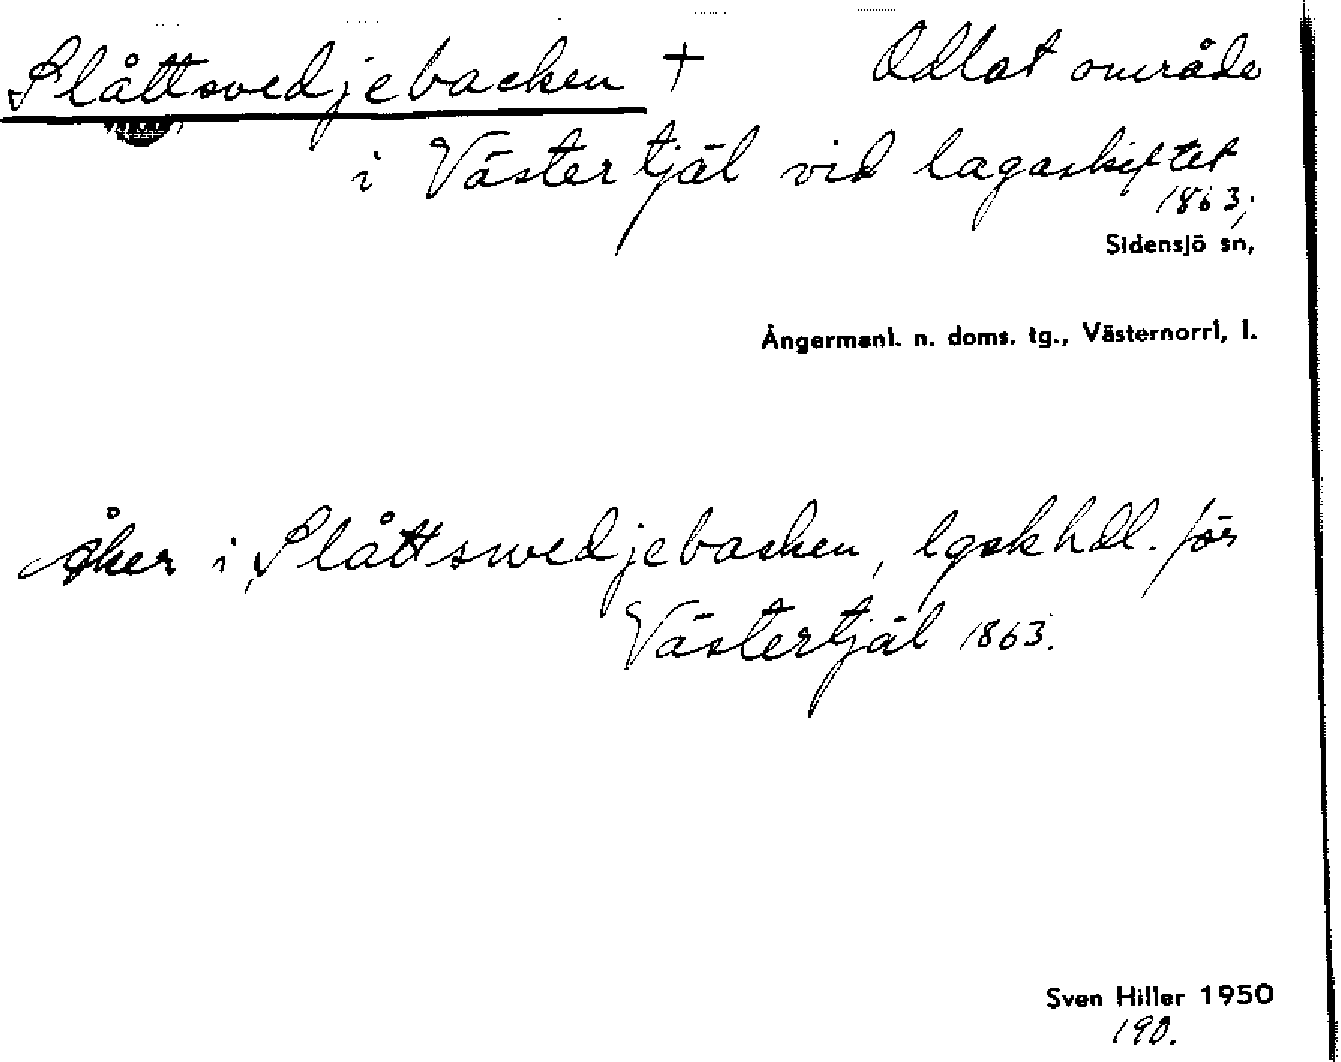 Slåttsvedjebacken † Odlat område
i Västertjäl vid lagaskiftet
1863;
Sidensjö sn,
Ångermanl. n. doms. tg., Västernorrl, l.
Åker i Slåttswedjebacken, lgsk hdl. för
Västertjäl 1863.
Sven Hiller 1950
190.